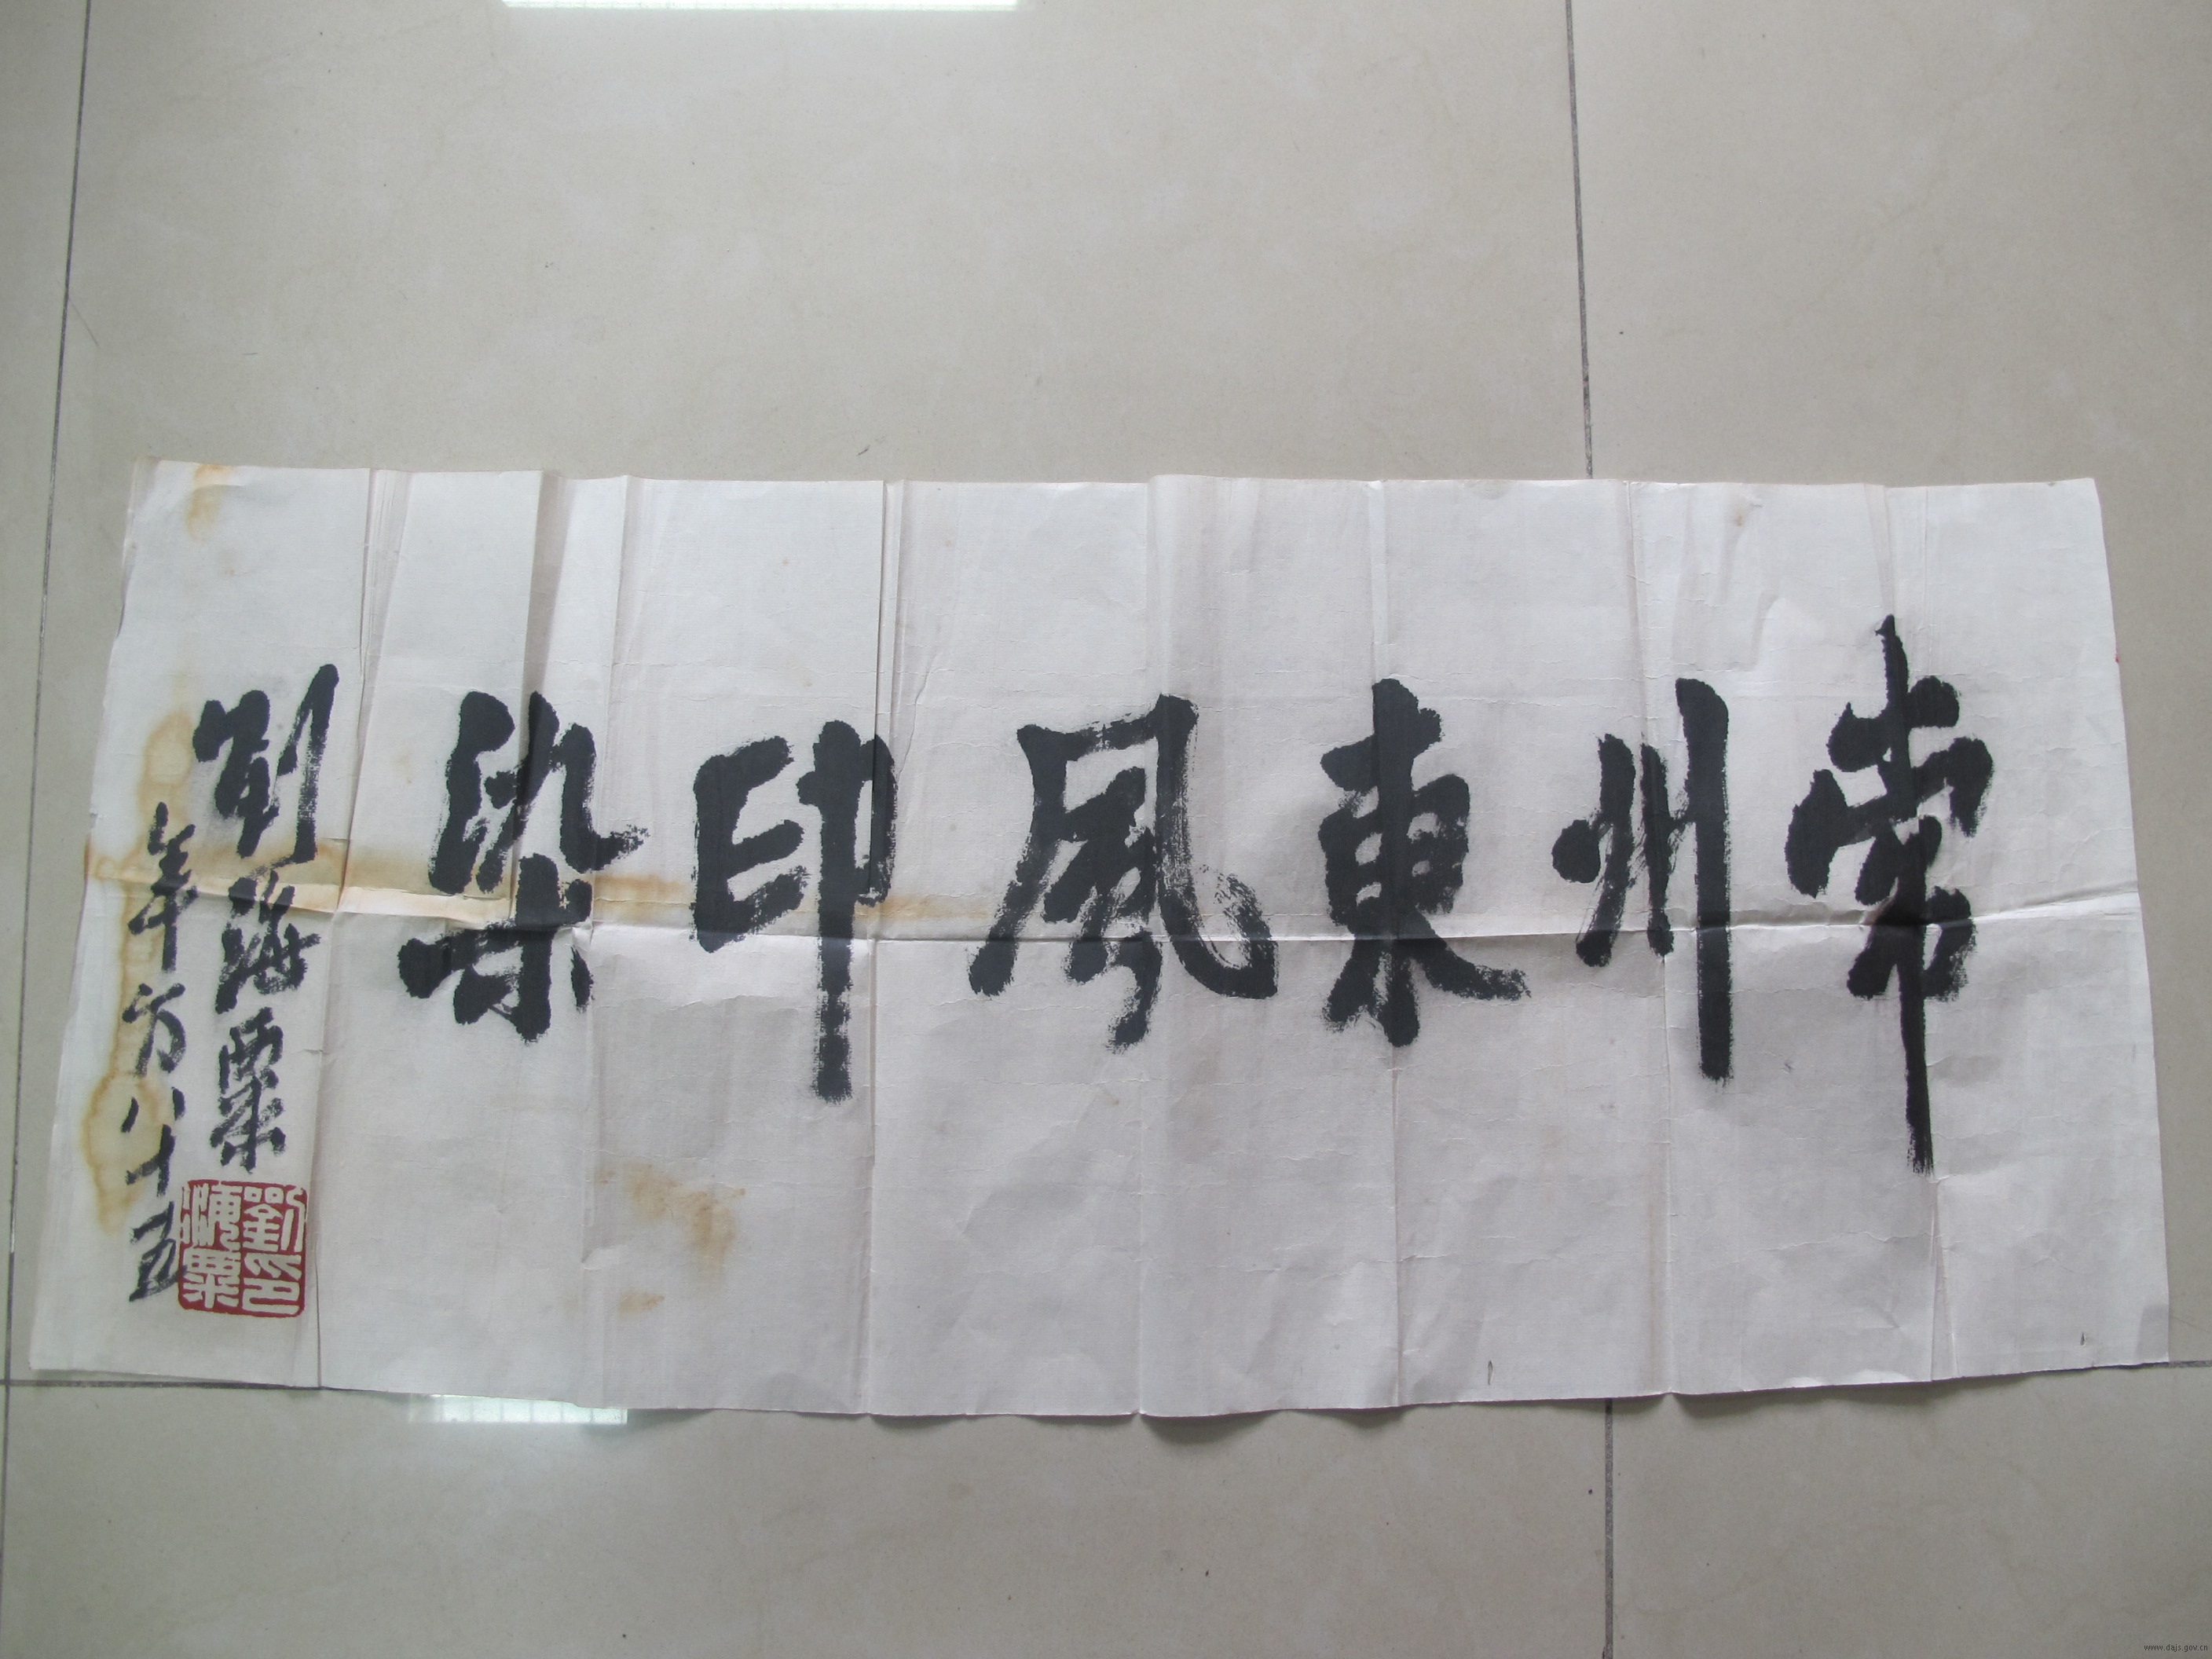 常州東風印染
劉海粟
年方八十五
劉海粟印
www.dajs.gov.cn